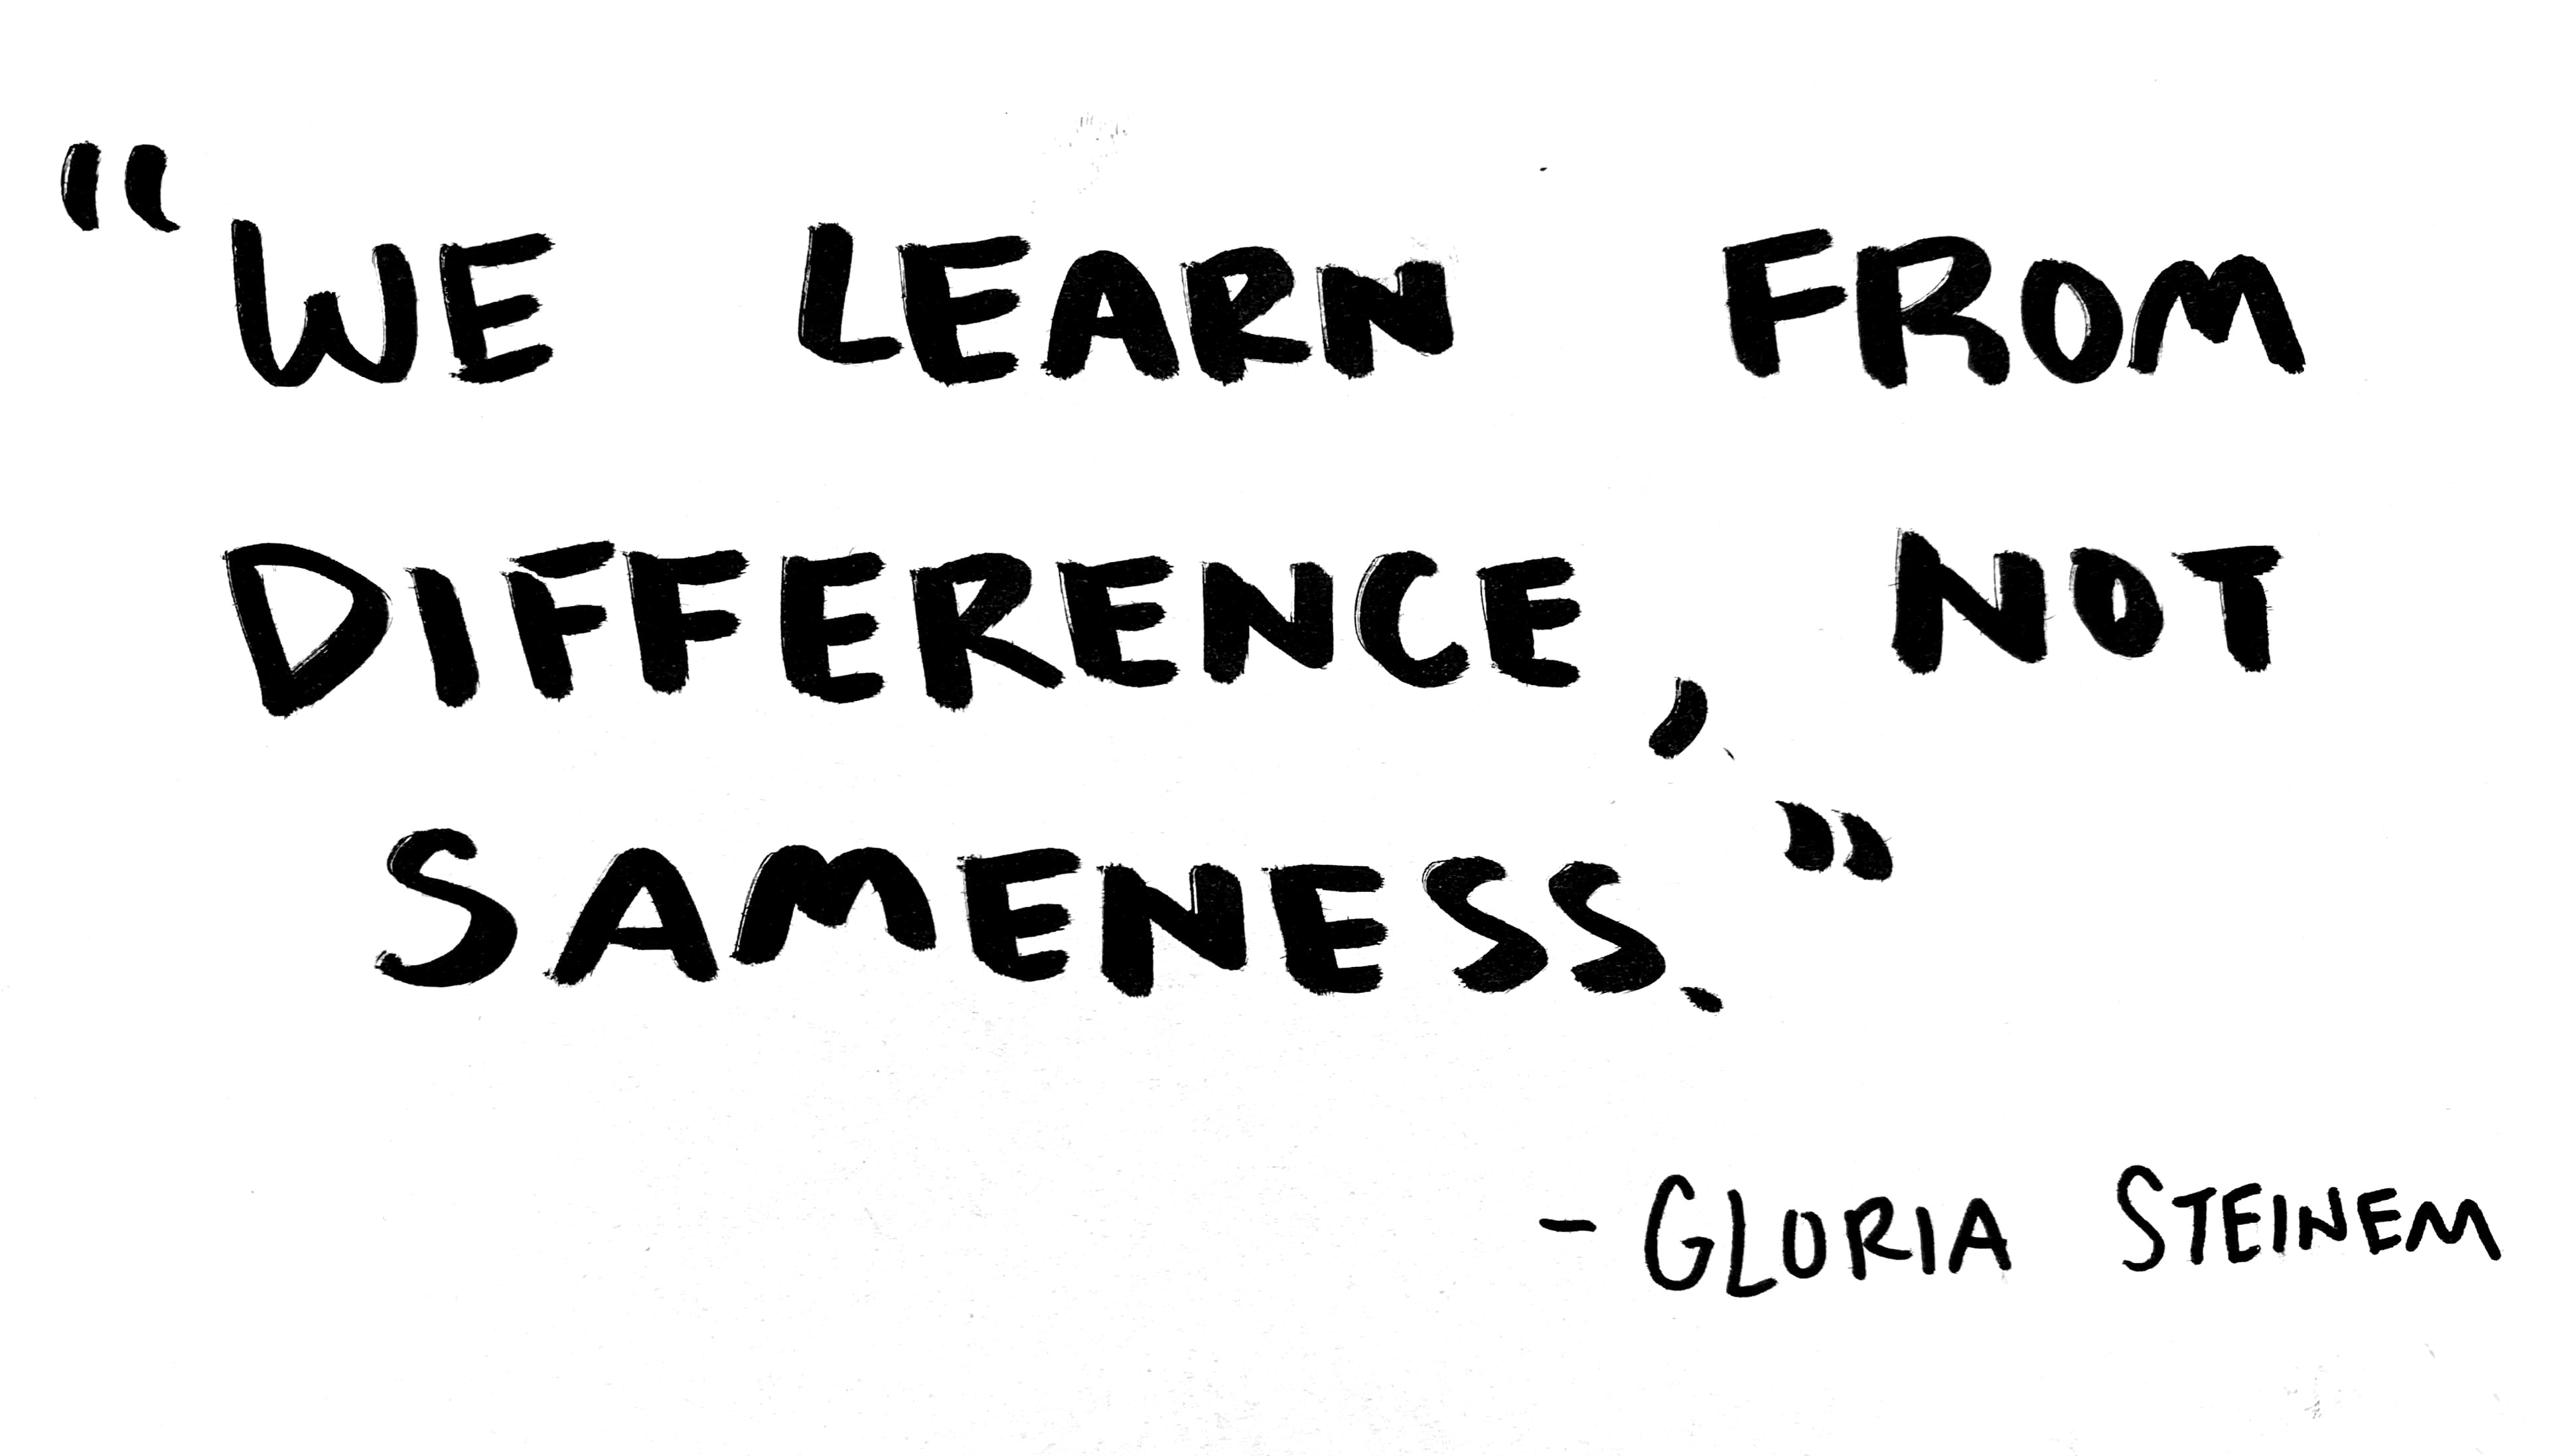 “WE LEARN FROM
DIFFERENCE, NOT
SAMENESS.”
- GLORIA STEINEM